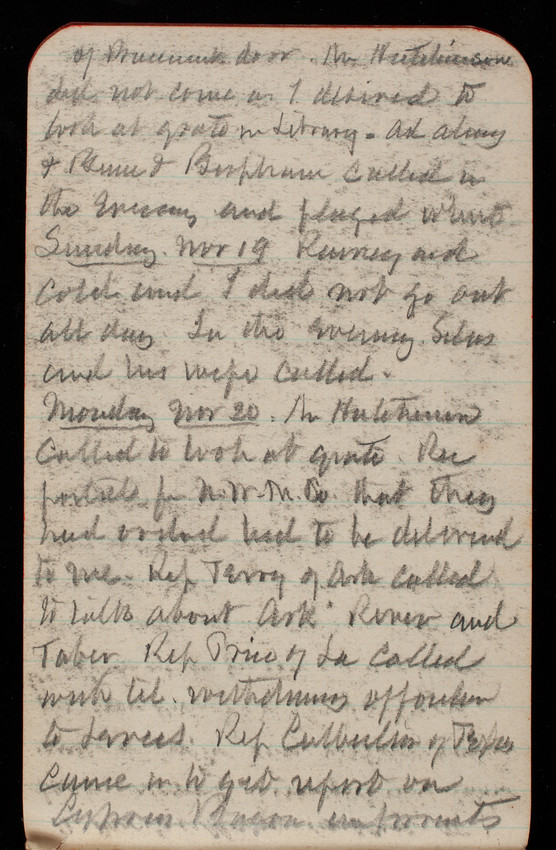 of basement door. Mr Hutchinson
did not come as I desired to
look at grate in Library. Ad along
& Bixby called in
the evening and played whist
Sunday Nov 19 Rainey and
cold and I did not go out
all day In the evening Silas
and his wife called.
Monday Nov 20. Mr Hutchinson
called to look at grate. Rec
postal fr N.W.M.Co. that they
had ordered bed to be delivered
to me. Rep Terry of Ark called
to talk about Ark. River and
Taber Rep Price of La called
with tel. withdrawing opposition
to Levees. Rep Culberson of Texas
came in to get report on
Cypress Bayou improvmts